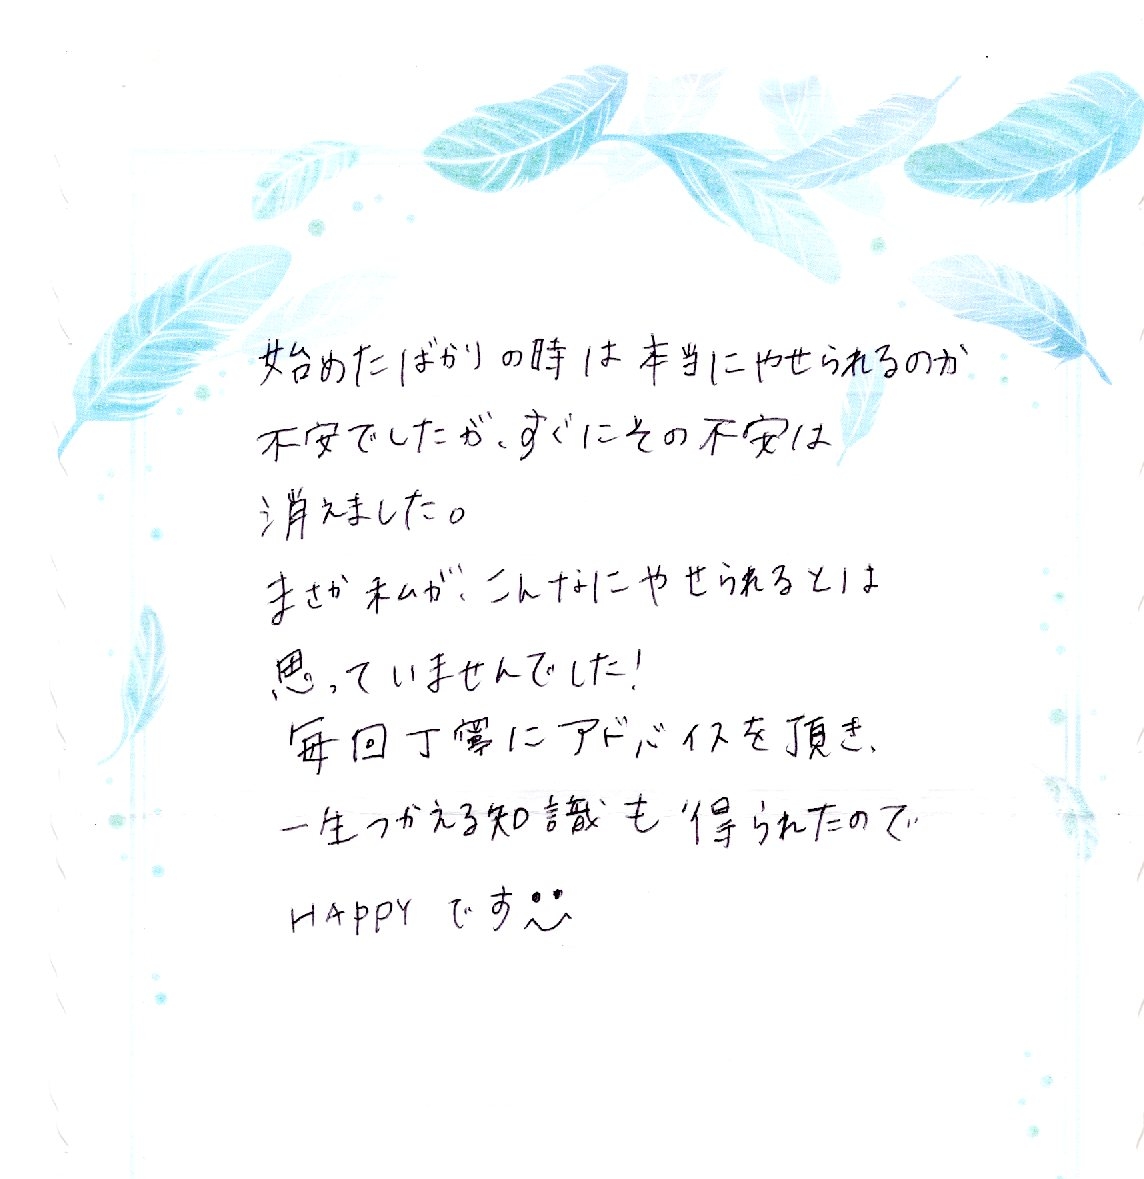 始めたばかりの時は本当にやせられるのか
不安でしたが、すぐにその不安は
消えました。
まさか私が、こんなにやせられるとは
思っていませんでした!
毎回丁寧にアドバイスを頂き、
一生つかえる知識も得られたので
HAPPYです